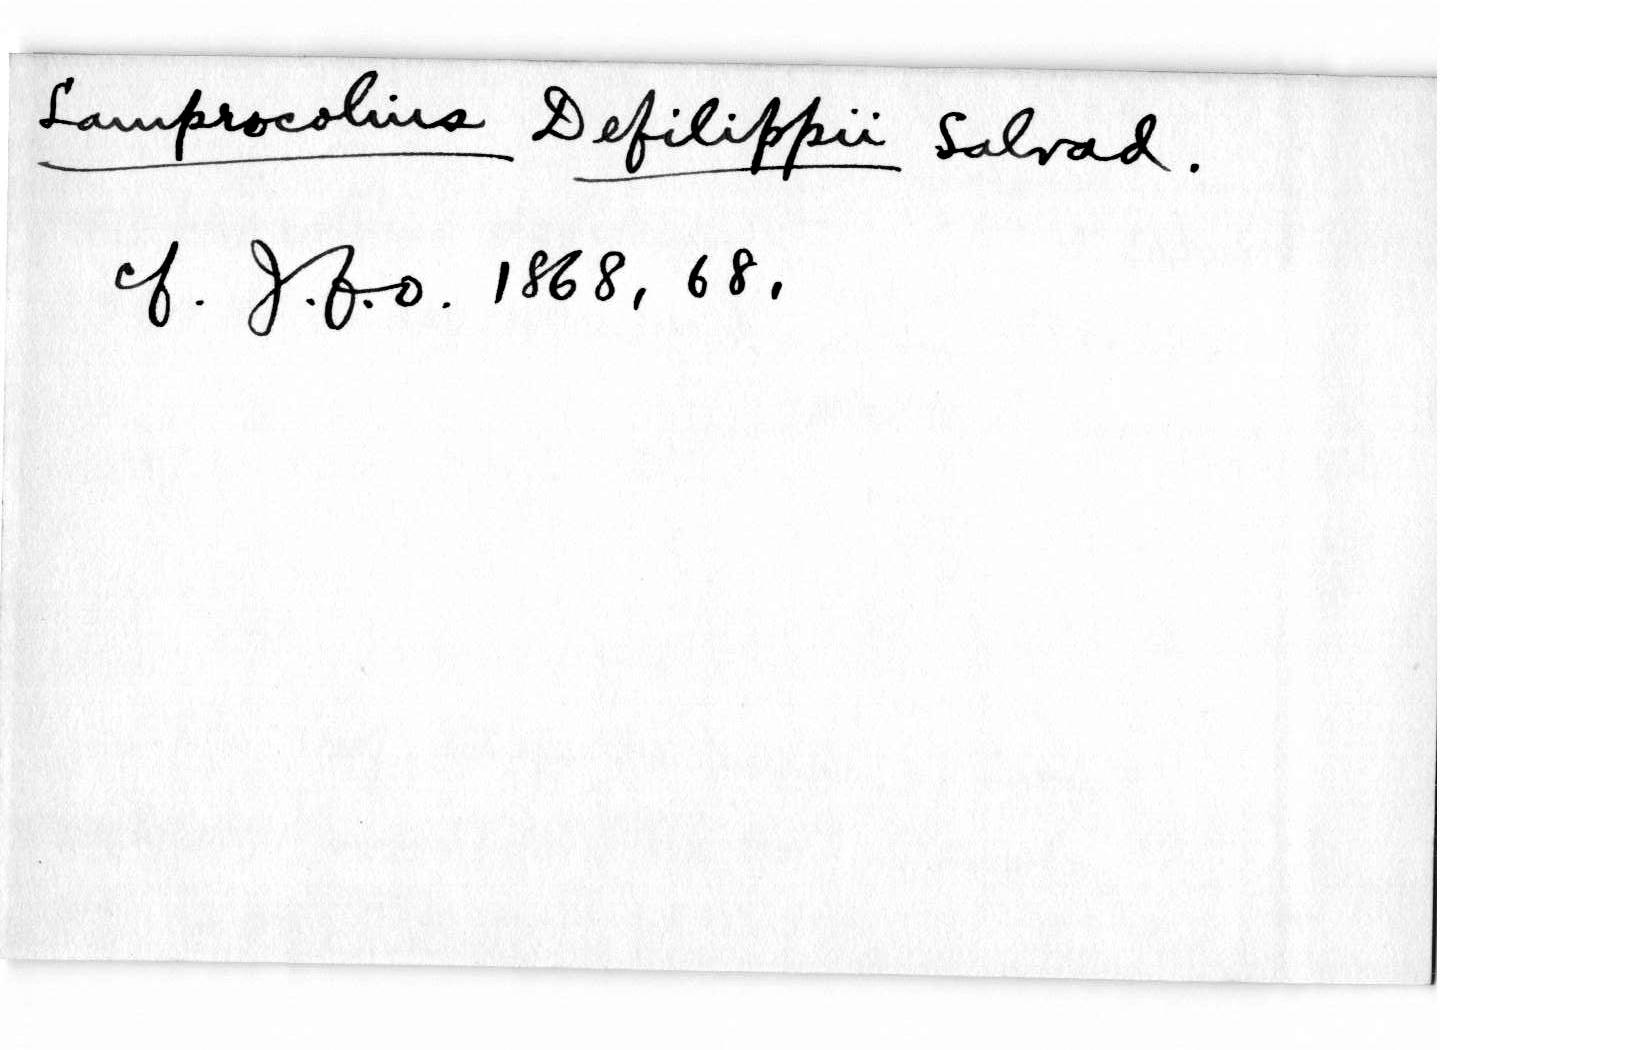 Lamprocolius Defilippii Salvad.
cf. J.f.O. 1868, 68,